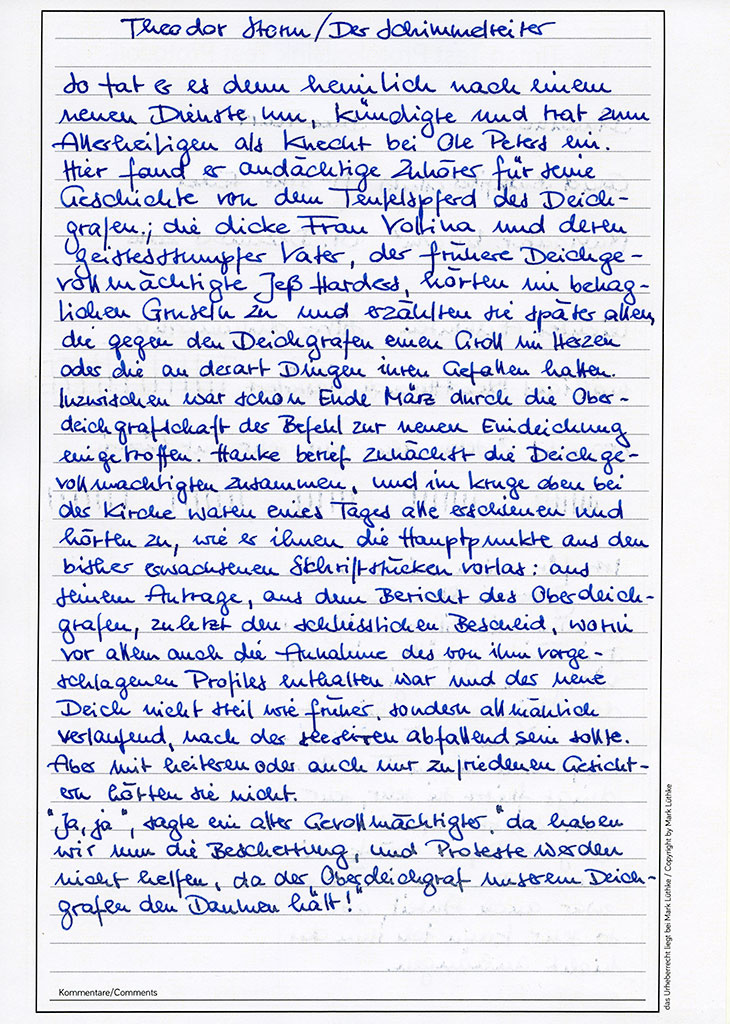 Theodor Storm / Der Schimmelreiter
So tat er es denn heimlich nach einem
neuen Dienste um, kündigte und trat zum
Allerheiligen als Knecht bei Ole Peters ein.
Hier fand er andächtige Zuhörer für seine
Geschichte von dem Teufelspferd des Deich-
grafen.; die dicke Frau Vollina und deren
geistesstumpfer Vater, der frühere Deichge-
vollmächtigte Jeß Harders, hörten in behag-
lichen Gruseln zu und erzählten sie später allen,
die gegen den Deichgrafen einen Groll im Herzen
oder die an derart Dingen ihren Gefallen hatten.
Inzwischen war schon Ende März durch die Ober-
deichgrafschaft der Befehl zur neuen Eindeichung
eingetroffen. Hauke berief zunächst die Deichge-
vollmächtigten zusammen, und im Kruge oben bei
der Kirche waren eines Tages alle erschienen und
hörten zu, wie er ihnen die Hauptpunkte aus den
bisher erwachsenen Schriftstücken vorlas: aus
seinem Antrage, aus dem Bericht des Oberdeich-
grafen, zuletzt den schliesslichen Bescheid, worin
vor allem auch die Annahme des von ihm vorge-
schlagenen Profiles enthalten war und der neue
Deich nicht steil wie früher, sondern allmählich
verlaufend, nach der seeseiten abfallend sein sollte.
Aber mit heiteren oder auch nur zufriedenen Gesicht-
ern hörten sie nicht.
"Ja, ja", sagte ein alter Gevollmächtigter, "da haben
wir nun die Bescherung, und Proteste werden
nicht helfen, da der Oberdeichgraf unserem Deich-
grafen den Daumen hält!"
Kommentare/Comments
das Urheberrecht liegt bei Mark Lüthke / Copyright by Mark Lüthke